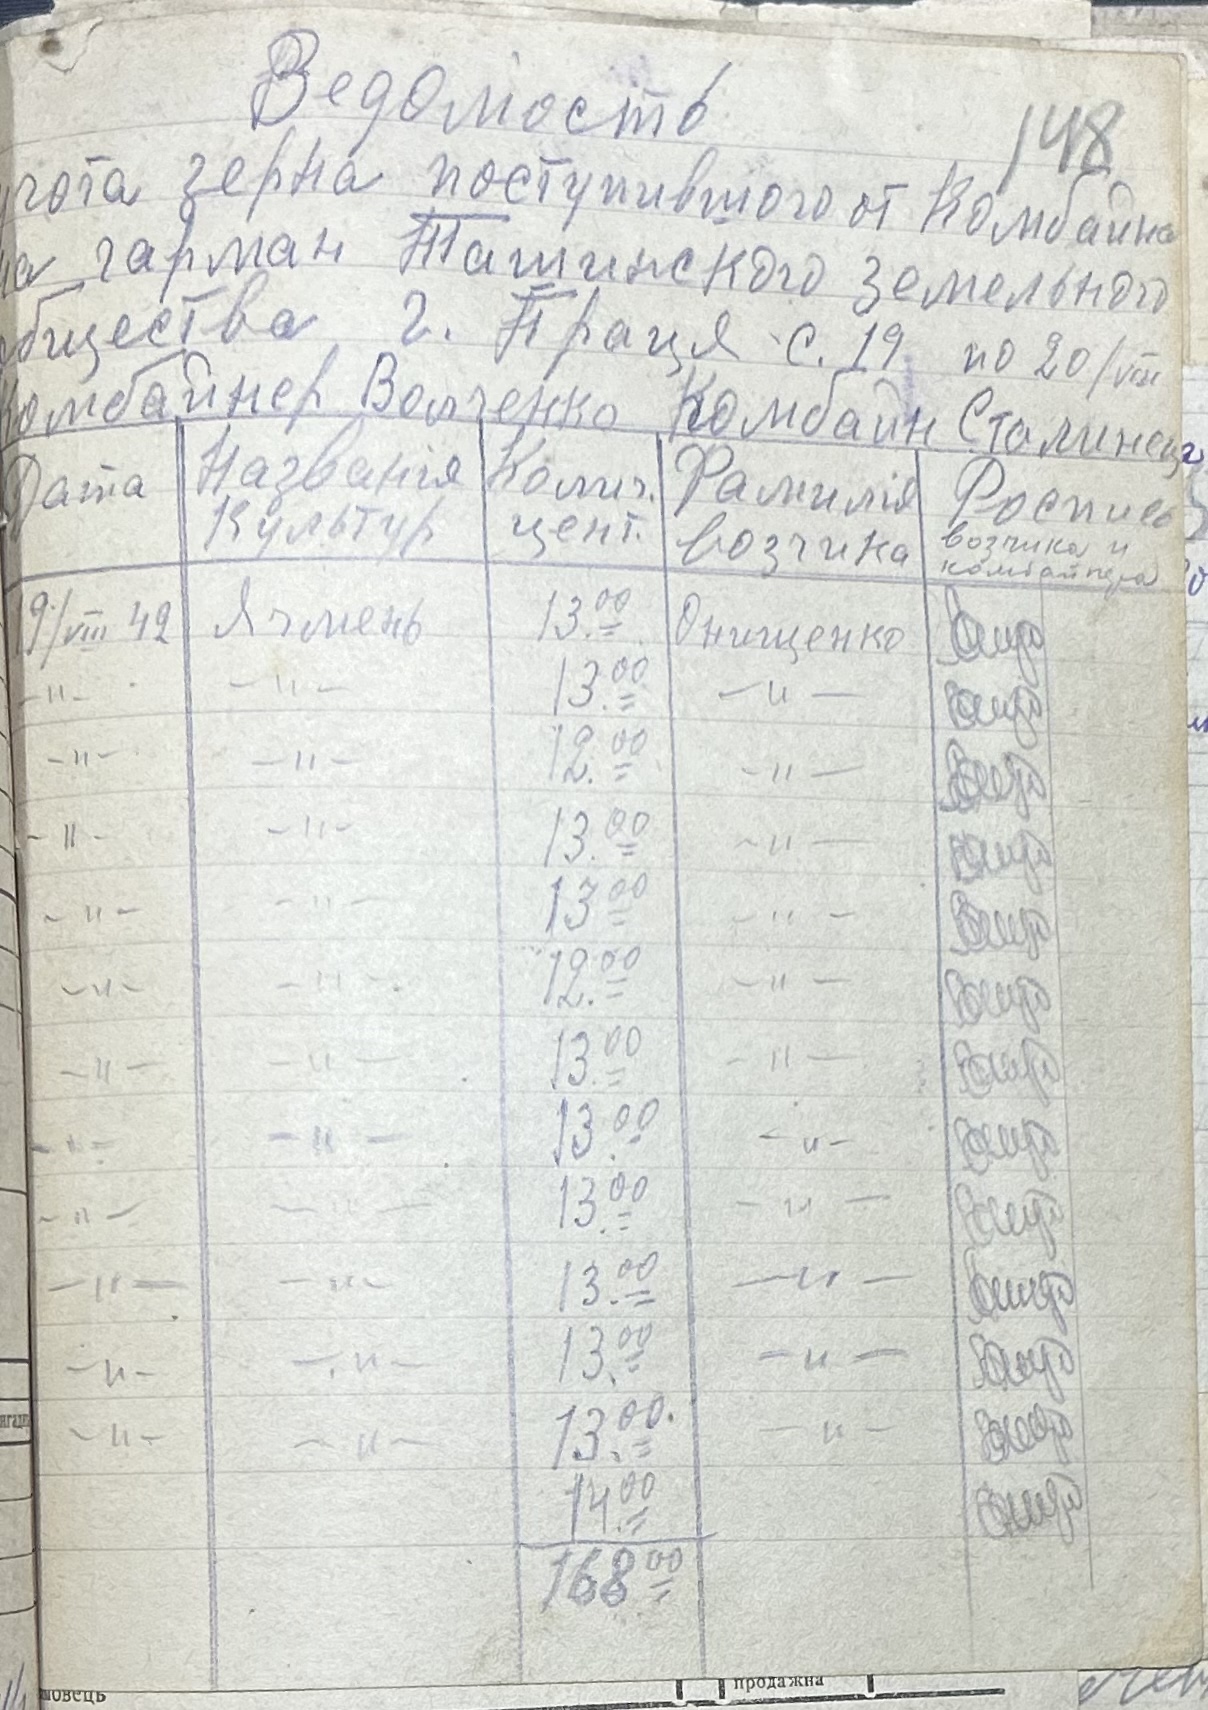 Ведомость
148
учота зерна поступившого от Комбайна
на гарман Ташинского земельного
общества г. Праця с. 19 по 20/VIII
Комбайнер Волченко Комбайн Сталинец
Дата Названія Культур Колич. цент. Фамилія возчика Роспись возчика и комбайнера
19/VIII 42 Ячмень 13.00 Онищенко
-"- -"- 13.00 -"-
-"- -"- 12.00 -"-
-"- -"- 13.00 -"-
-"- -"- 13.00 -"-
-"- -"- 12.00 -"-
-"- -"- 13.00 -"-
-"- -"- 13.00 -"-
-"- -"- 13.00 -"-
-"- -"- 13.00 -"-
-"- -"- 13.00 -"-
-"- -"- 13.00 -"-
14.00
168 00
продажна